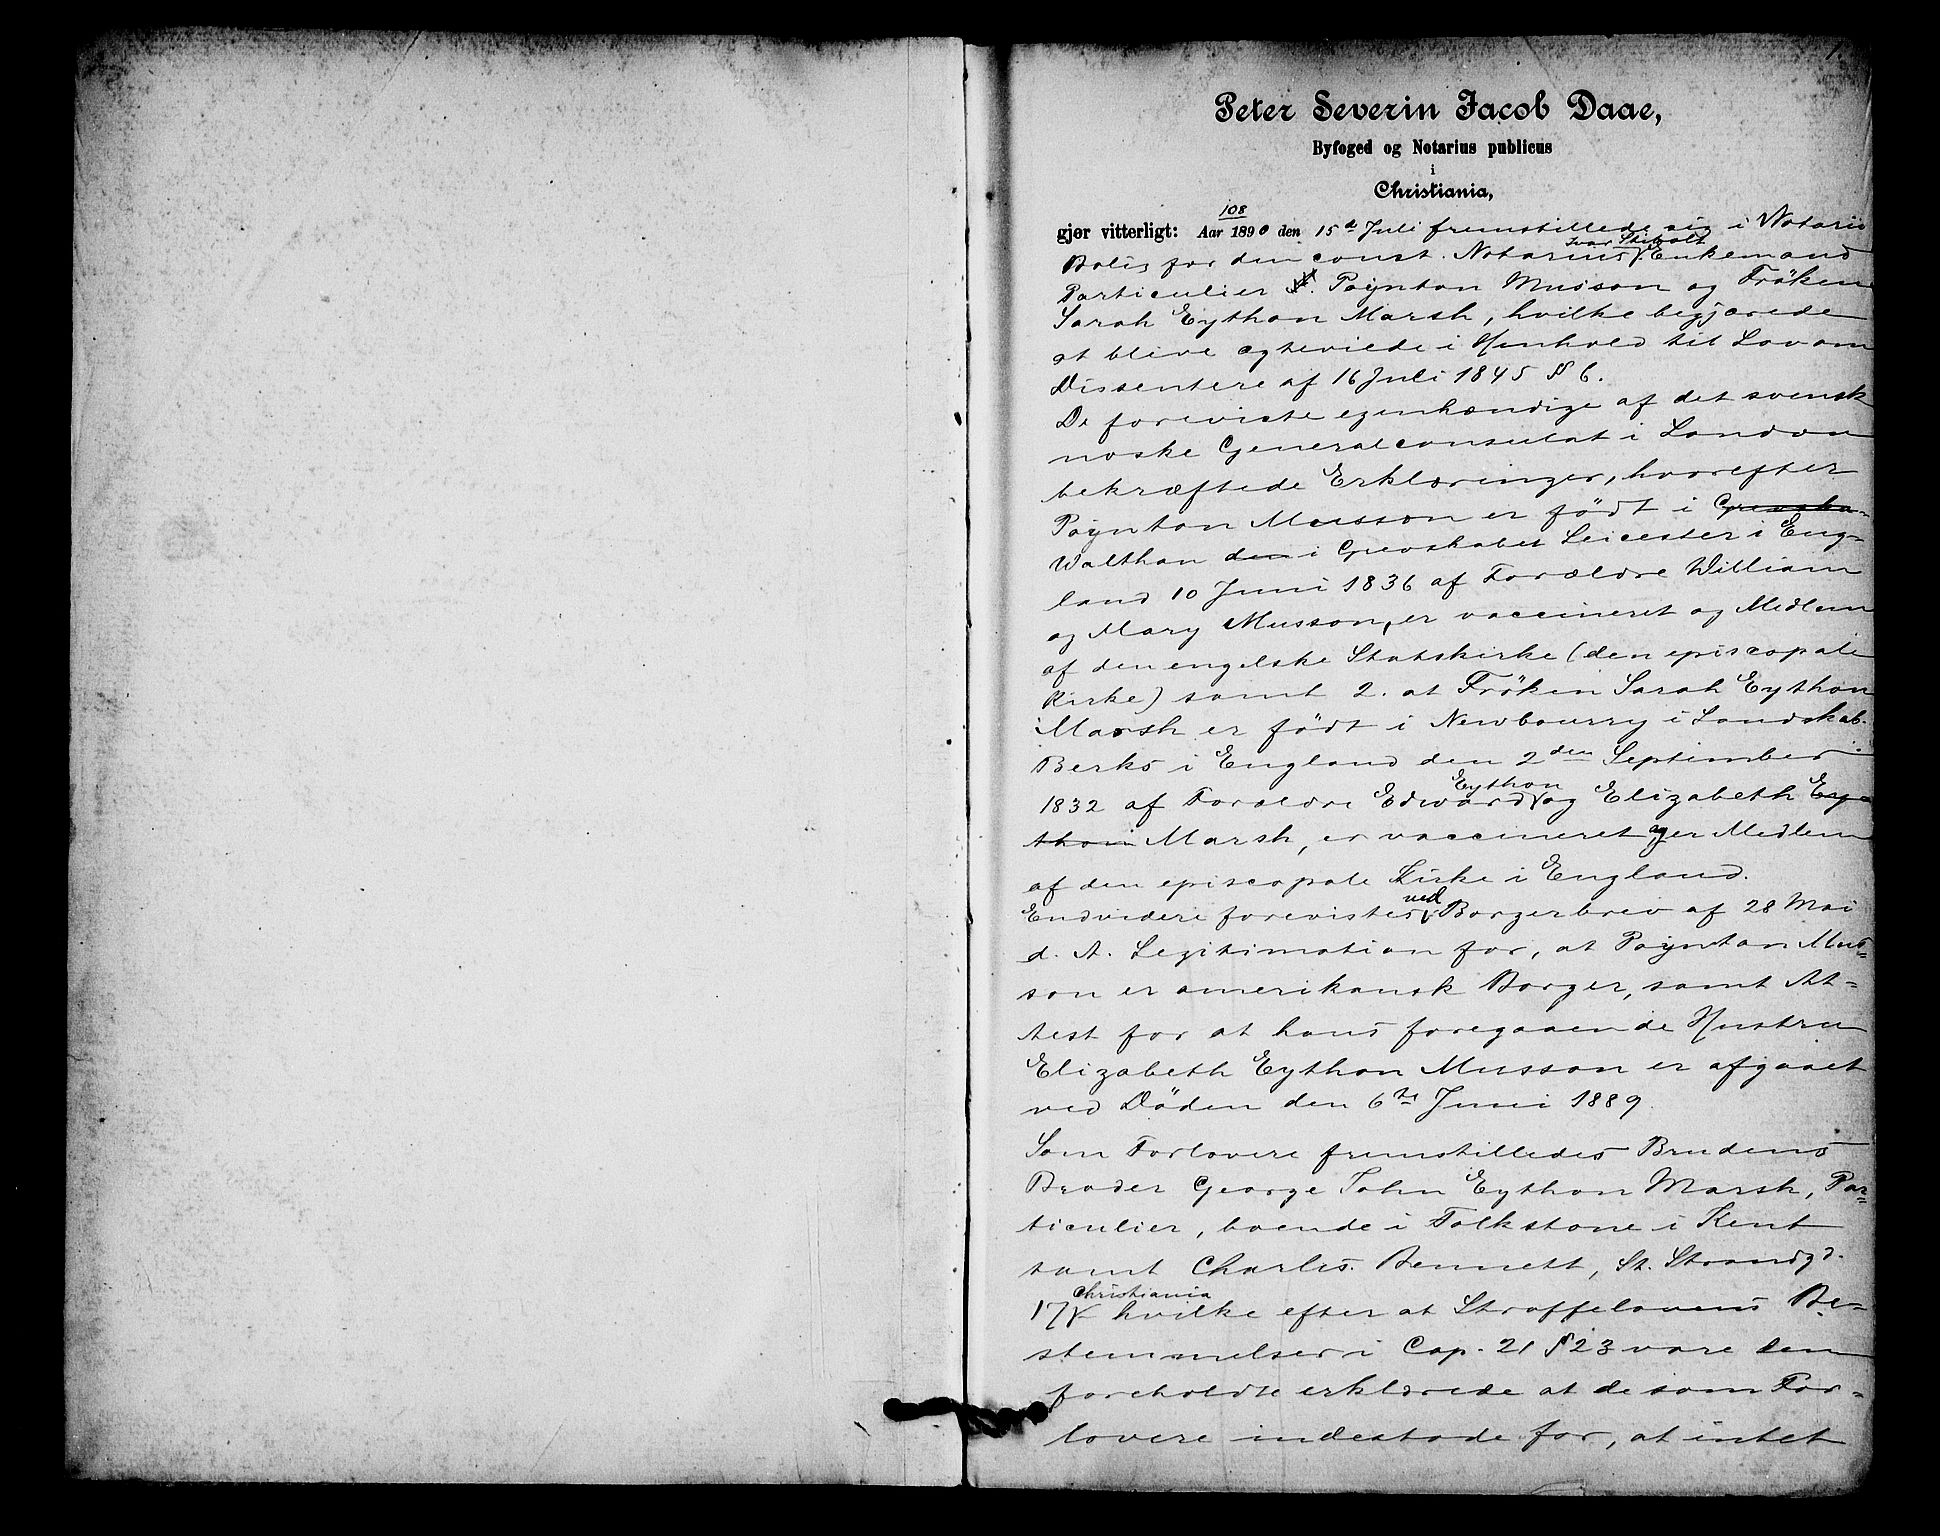 1.
Peter Severin Jacob Daae,
Byfoged og Notarius publicus
i
Christiania,
108
gjør vitterligt: Aar 1890 den 15de Juli fremstillede sig i Notarii
Ivar Stibolt
Bolig for den const. Notarius Enkemand
Particulier Poynton Musson og Frøken
Sarah Eython Marsh, hvilke begjærede
at blive egteviede i Henhold til Lov om
Dissentere af 16 Juli 1845 § 6.
De foreviste egenhændige af det svensk
norske Generalconsulat i London
bekræftede Erklæringer, hvorefter
Poynton Musson er født i Grevska-
Walthan den i Grevskabet Leicester i Eng-
land 10 Juni 1836 af Forældre William
og Mary Musson, er vaccineret og Medlem
af den engelske Statskirke (den episcopale
Kirke) samt 2. at Frøken Sarah Eython
Marsh er født i Newbourry i Landskab.
Berks i England den 2den September
Eython
1832 af Forældre Edward og Elizabeth Ey-
thon Marsh, er vaccineret og er Medlem
af den episcopale Kirke i England.
ved
Endvidere forevistes Borgerbrev af 28 Mai
d. A. Legitimation for, at Poynton Mus=
son er amerikansk Borger, samt At=
test for at hans foregaaende Hustru
Elizabeth Eython Musson er afgaaet
ved Døden den 6te Juni 1889.
Som Forlovere fremstilledes Brudens
Broder George John Eython Marsh, Par=
ticulier, boende i Folkstone i Kent
samt Charles Bennett, St. Strandgd.
Christiania
17 hvilke efter at Straffelovens Be=
stemmelser i Cap. 21 § 23 vare dem
foreholdte erklærede at de som For=
lovere indestode for, at intet